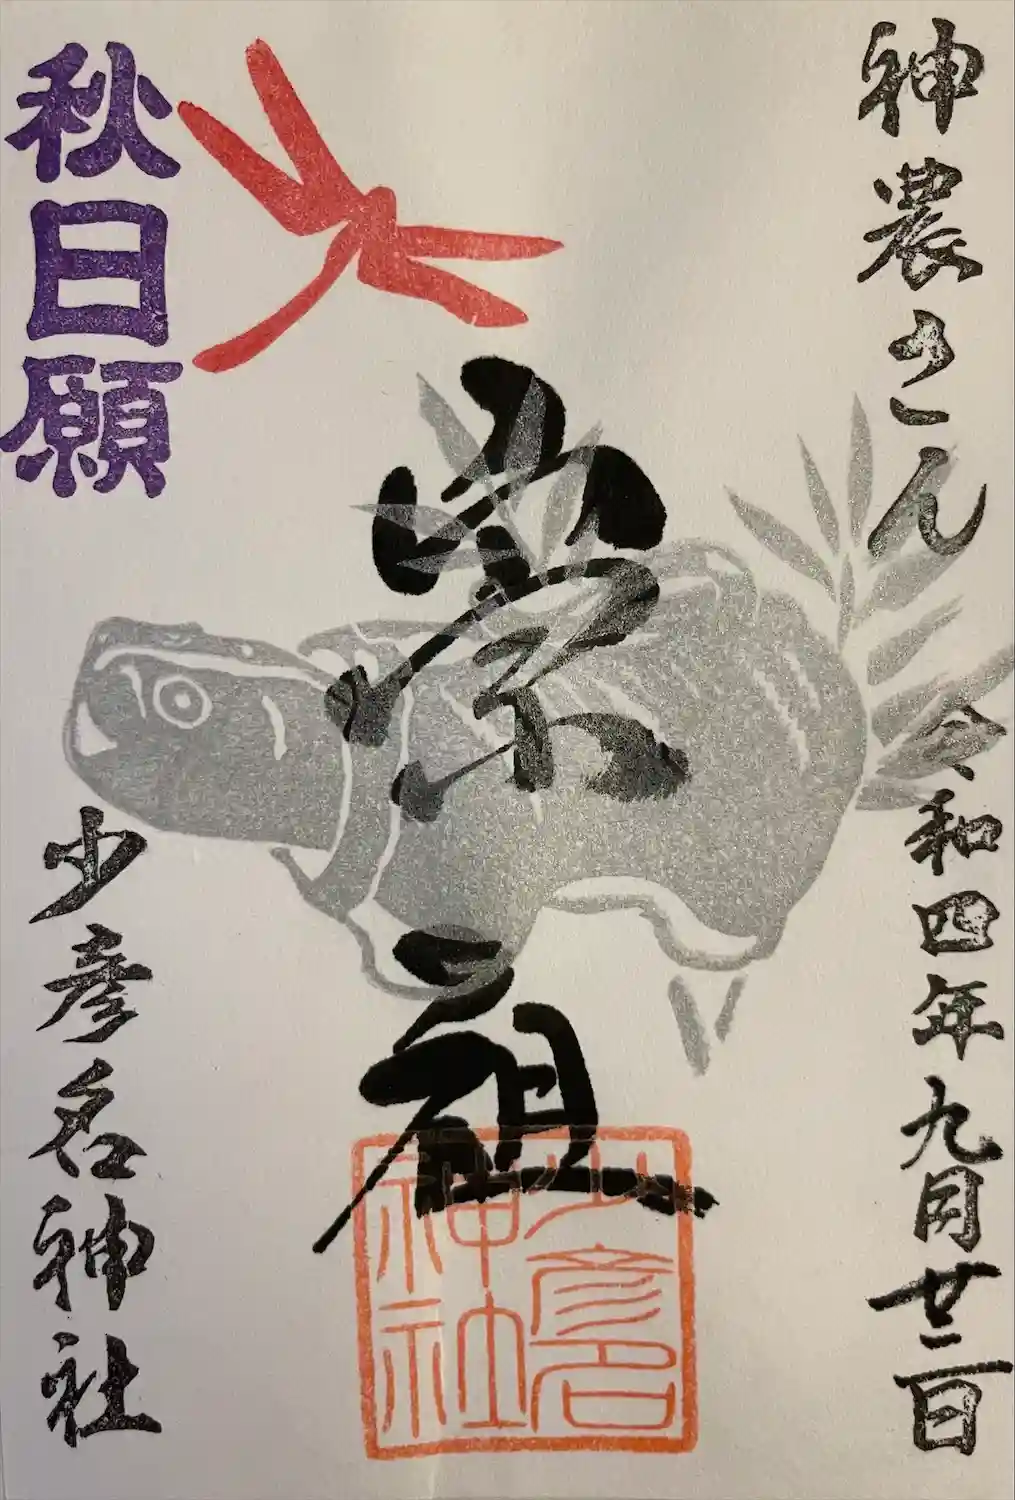 神農さん
令和四年九月廿三日
崇祖
秋日願
少彦名神社
少彦名
神社